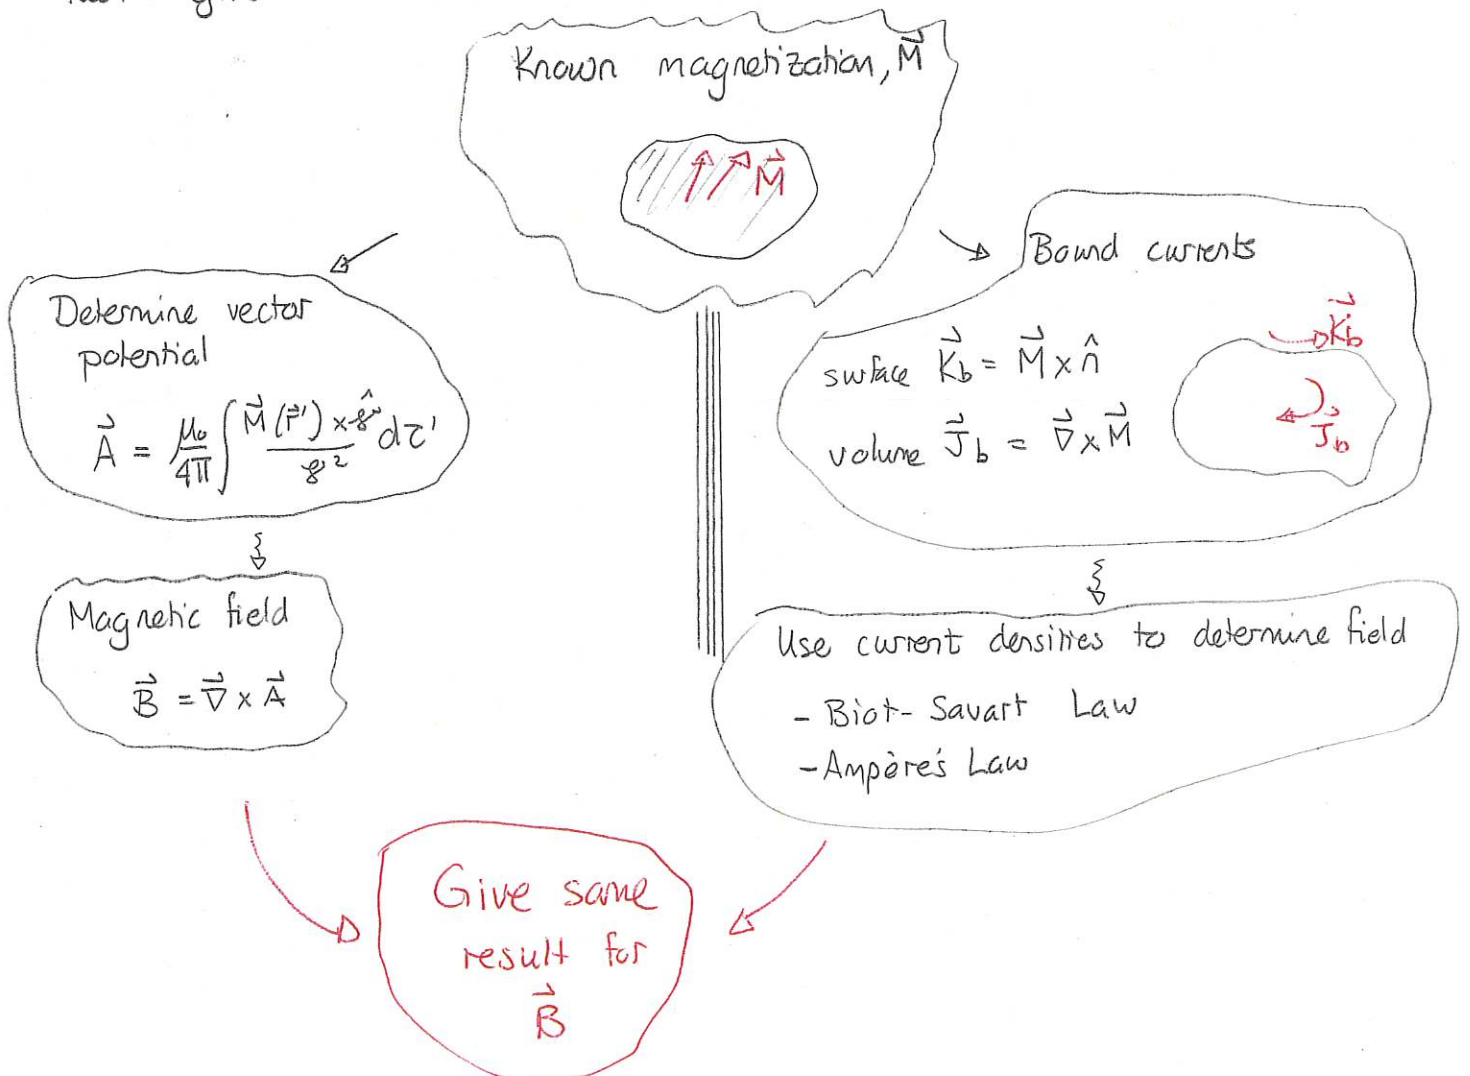 Known magnetization, M⃗
M⃗
Determine vector
potential
A⃗ = μ₀/4π ∫ M⃗(r⃗') × 𝓇̂ / 𝓇² dτ'
Magnetic field
B⃗ = ∇⃗ × A⃗
Bound currents
surface K⃗b = M⃗ × n̂
volume J⃗b = ∇⃗ × M⃗
K⃗b
J⃗b
Use current densities to determine field
- Biot-Savart Law
- Ampère's Law
Give same
result for
B⃗